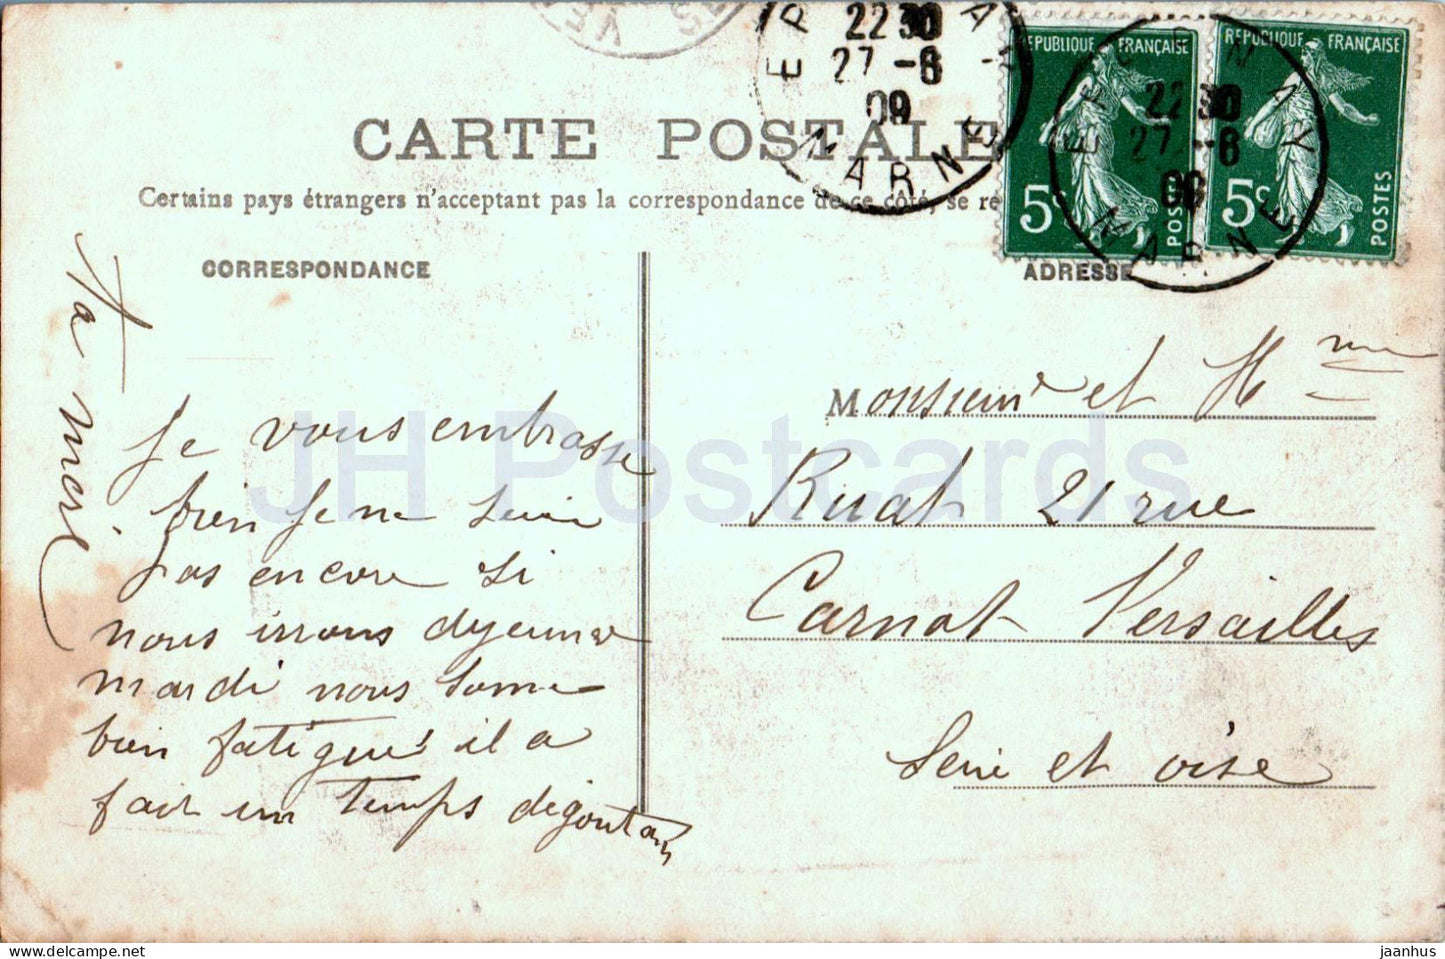 EPERNAY
22 30
27 -6
09
MARNE
REPUBLIQUE FRANÇAISE
5c
POSTES
REPUBLIQUE FRANÇAISE
5c
POSTES
EPERNAY
22 30
27 -6
09
MARNE
CARTE POSTALE
Certains pays étrangers n'acceptent pas la correspondance de ce côté, se re
CORRESPONDANCE
ADRESSE
Je vous embrasse
bien je ne
pas encore si
nous irrons dyeuner
mardi nous some
bien fatigué il a
fait un temps dégoutan
Monsieur et Mme
Ruat 21 rue
Carnot Versailles
Seine et oise
JH Postcards
jaanhus